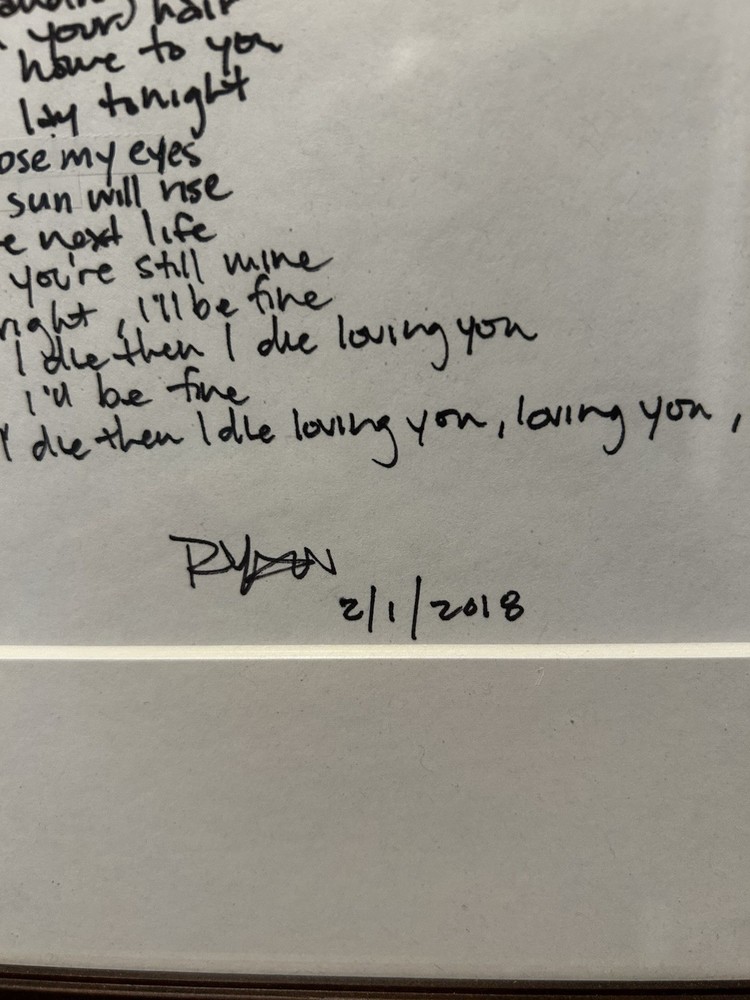 your hair
home to you
lay tonight
ose my eyes
sun will rise
e next life
you're still mine
night, I'll be fine
I die then I die loving you
I'll be fine
I die then I die loving you, loving you,
RYAN
2/1/2018